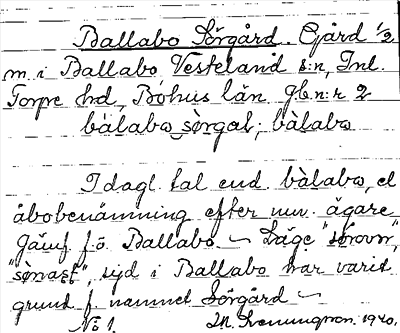 Ballabo Sörgård. Gård 1/2
m. i Ballabo, Västeland s:n, Inl.
Torpe hd, Bohus län. Gb.n:r 2
bàlabo sørgal; bàlabo
I dagl. tal end. bàlabo, el
åbobenämning efter nuv. ägare
Jämf. f.ö. Ballabo. ~ Läge "sörovr",
"sönast", syd i Ballabo har varit
grund f. namnet Sörgård ~
No 1. 1940.